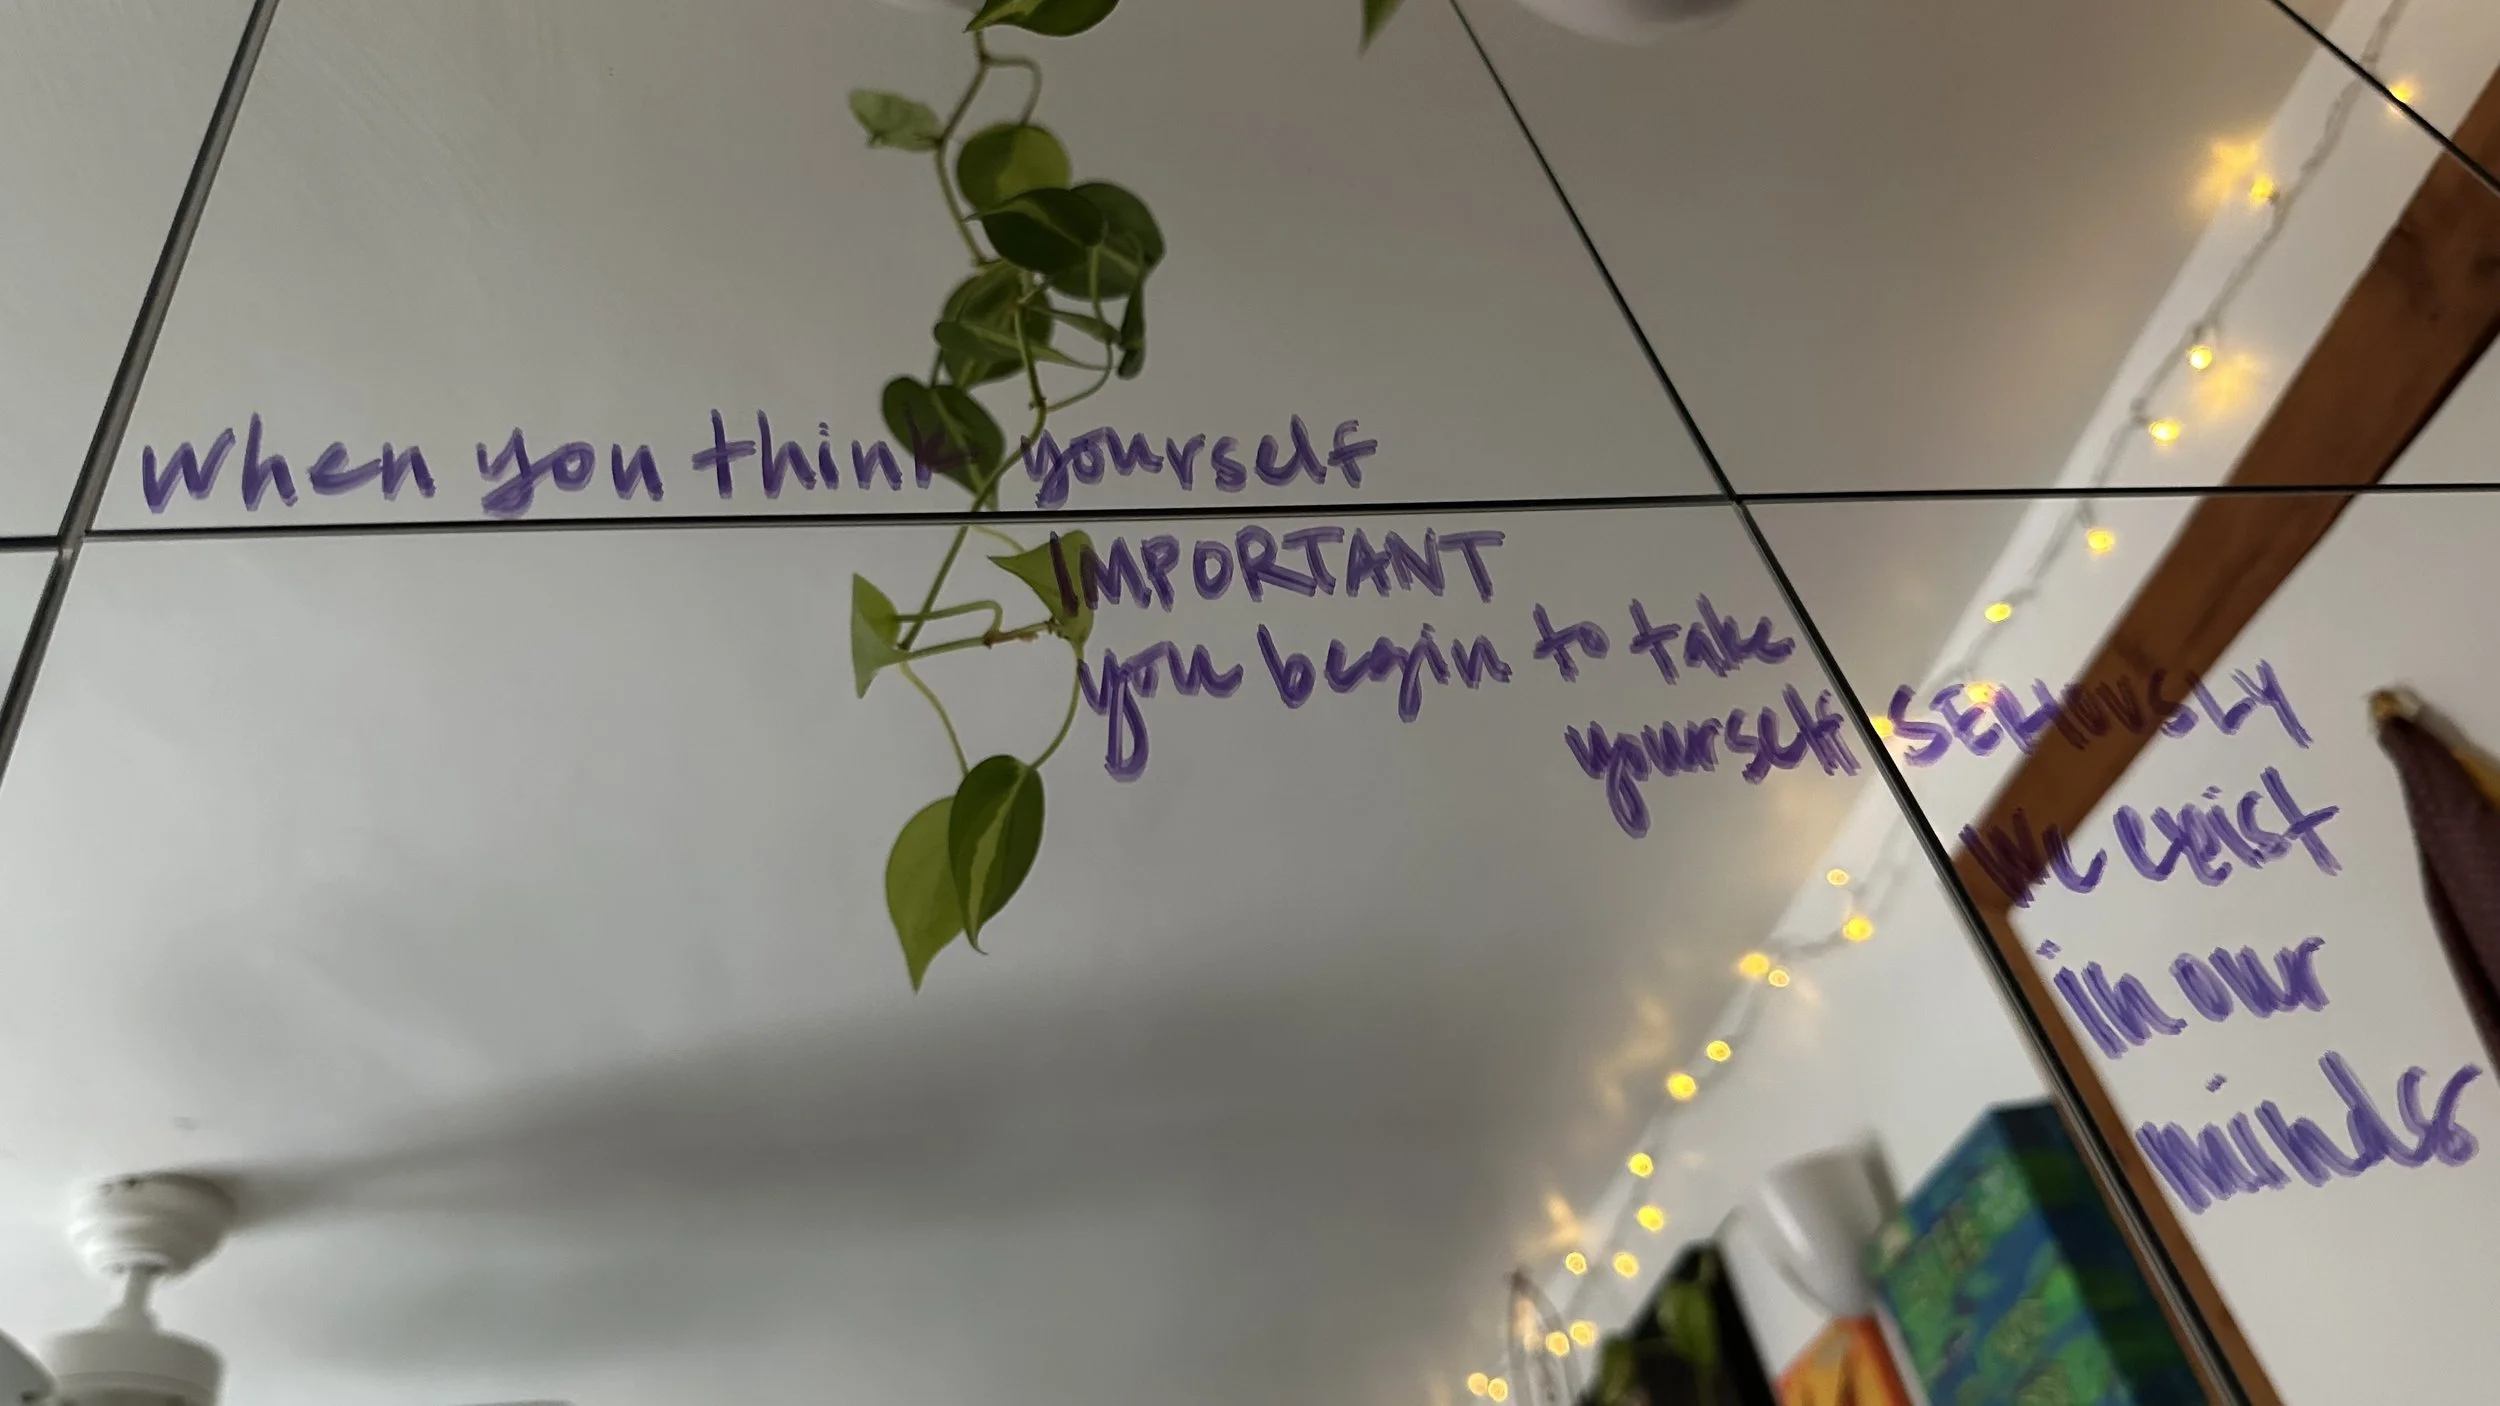 When you think yourself
IMPORTANT
you begin to take
yourself SERIOUSLY
We exist
in our
minds